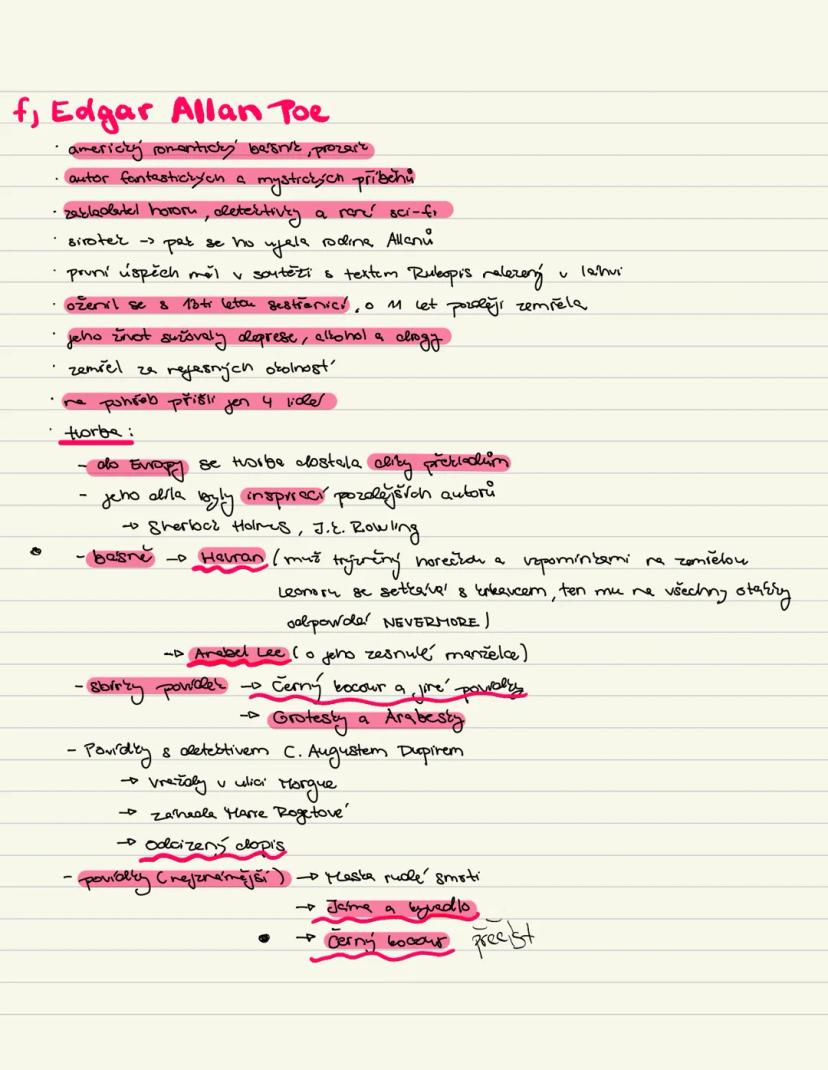 f, Edgar Allan Poe
· americký romantický básník, prozaik
· autor fantastických a mystických příběhů
· zakladatel hororu, detektivky a raní sci-fi
· sirotek -> pak se ho ujala rodina Allanů
· první úspěch měl v soutěži s textem Rukopis nalezený v lahvi
· oženil se s 13ti letou sestřenicí, o 11 let později zemřela
· jeho život sužovaly deprese, alkohol a drogy
· zemřel za nejasných okolností
· na pohřeb přišli jen 4 lidé
· tvorba:
- do Evropy se tvorba dostala díky překladům
- jeho díla byly inspirací pozdějších autorů
-> Sherlock Holmes, J.K. Rowling
- básně -> Havran (muž trýzněný horečkou a vzpomínkami na zemřelou
Leonoru se setkává s krkavcem, ten mu na všechny otázky
odpovídá NEVERMORE)
-> Anabel Lee (o jeho zesnulé manželce)
- sbírky povídek -> Černý kocour a jiné povídky
-> Grotesky a Arabesky
- Povídky s detektivem C. Augustem Dupinem
-> Vraždy v ulici Morgue
-> záhada Marie Rogetové
-> Odcizený dopis
- povídky (nejznámější) -> Maska rudé smrti
-> Jáma a kyvadlo
-> Černý kocour přečíst